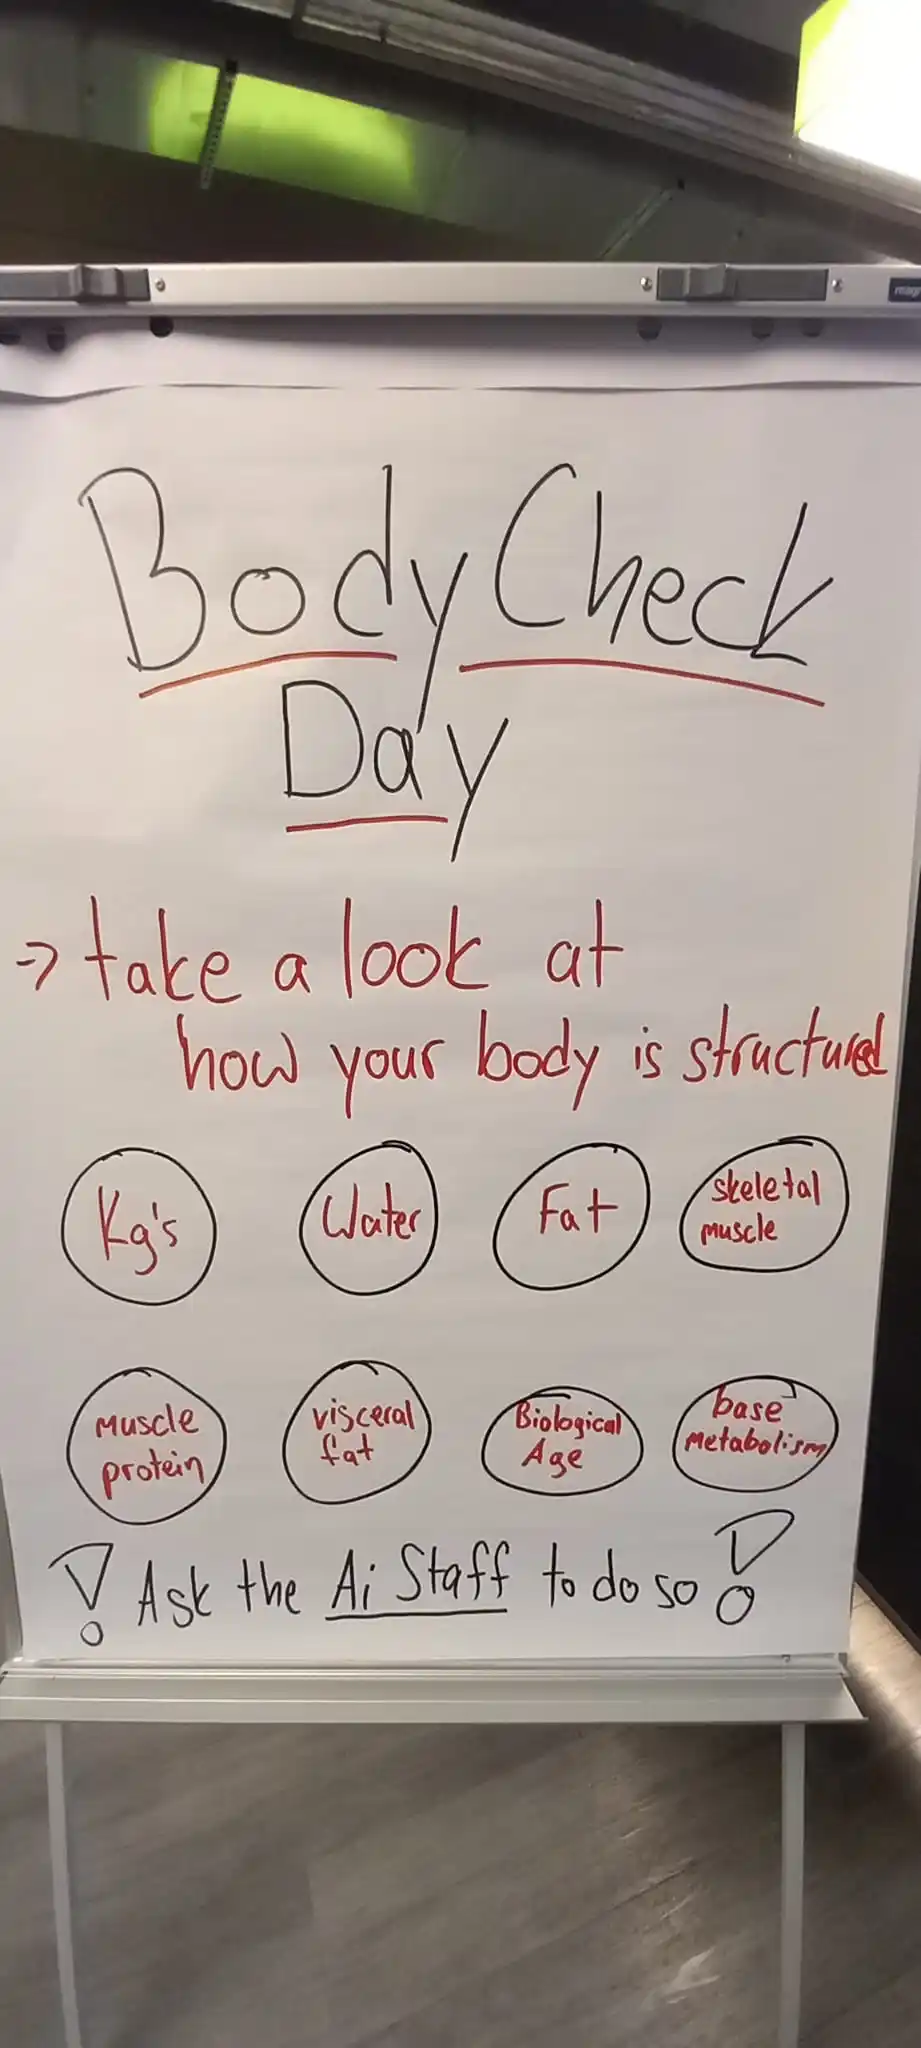 Body Check
Day
-> take a look at
how your body is structured
Kg's Water Fat skeletal muscle
Muscle protein visceral fat Biological Age base Metabolism
! Ask the Ai Staff to do so !